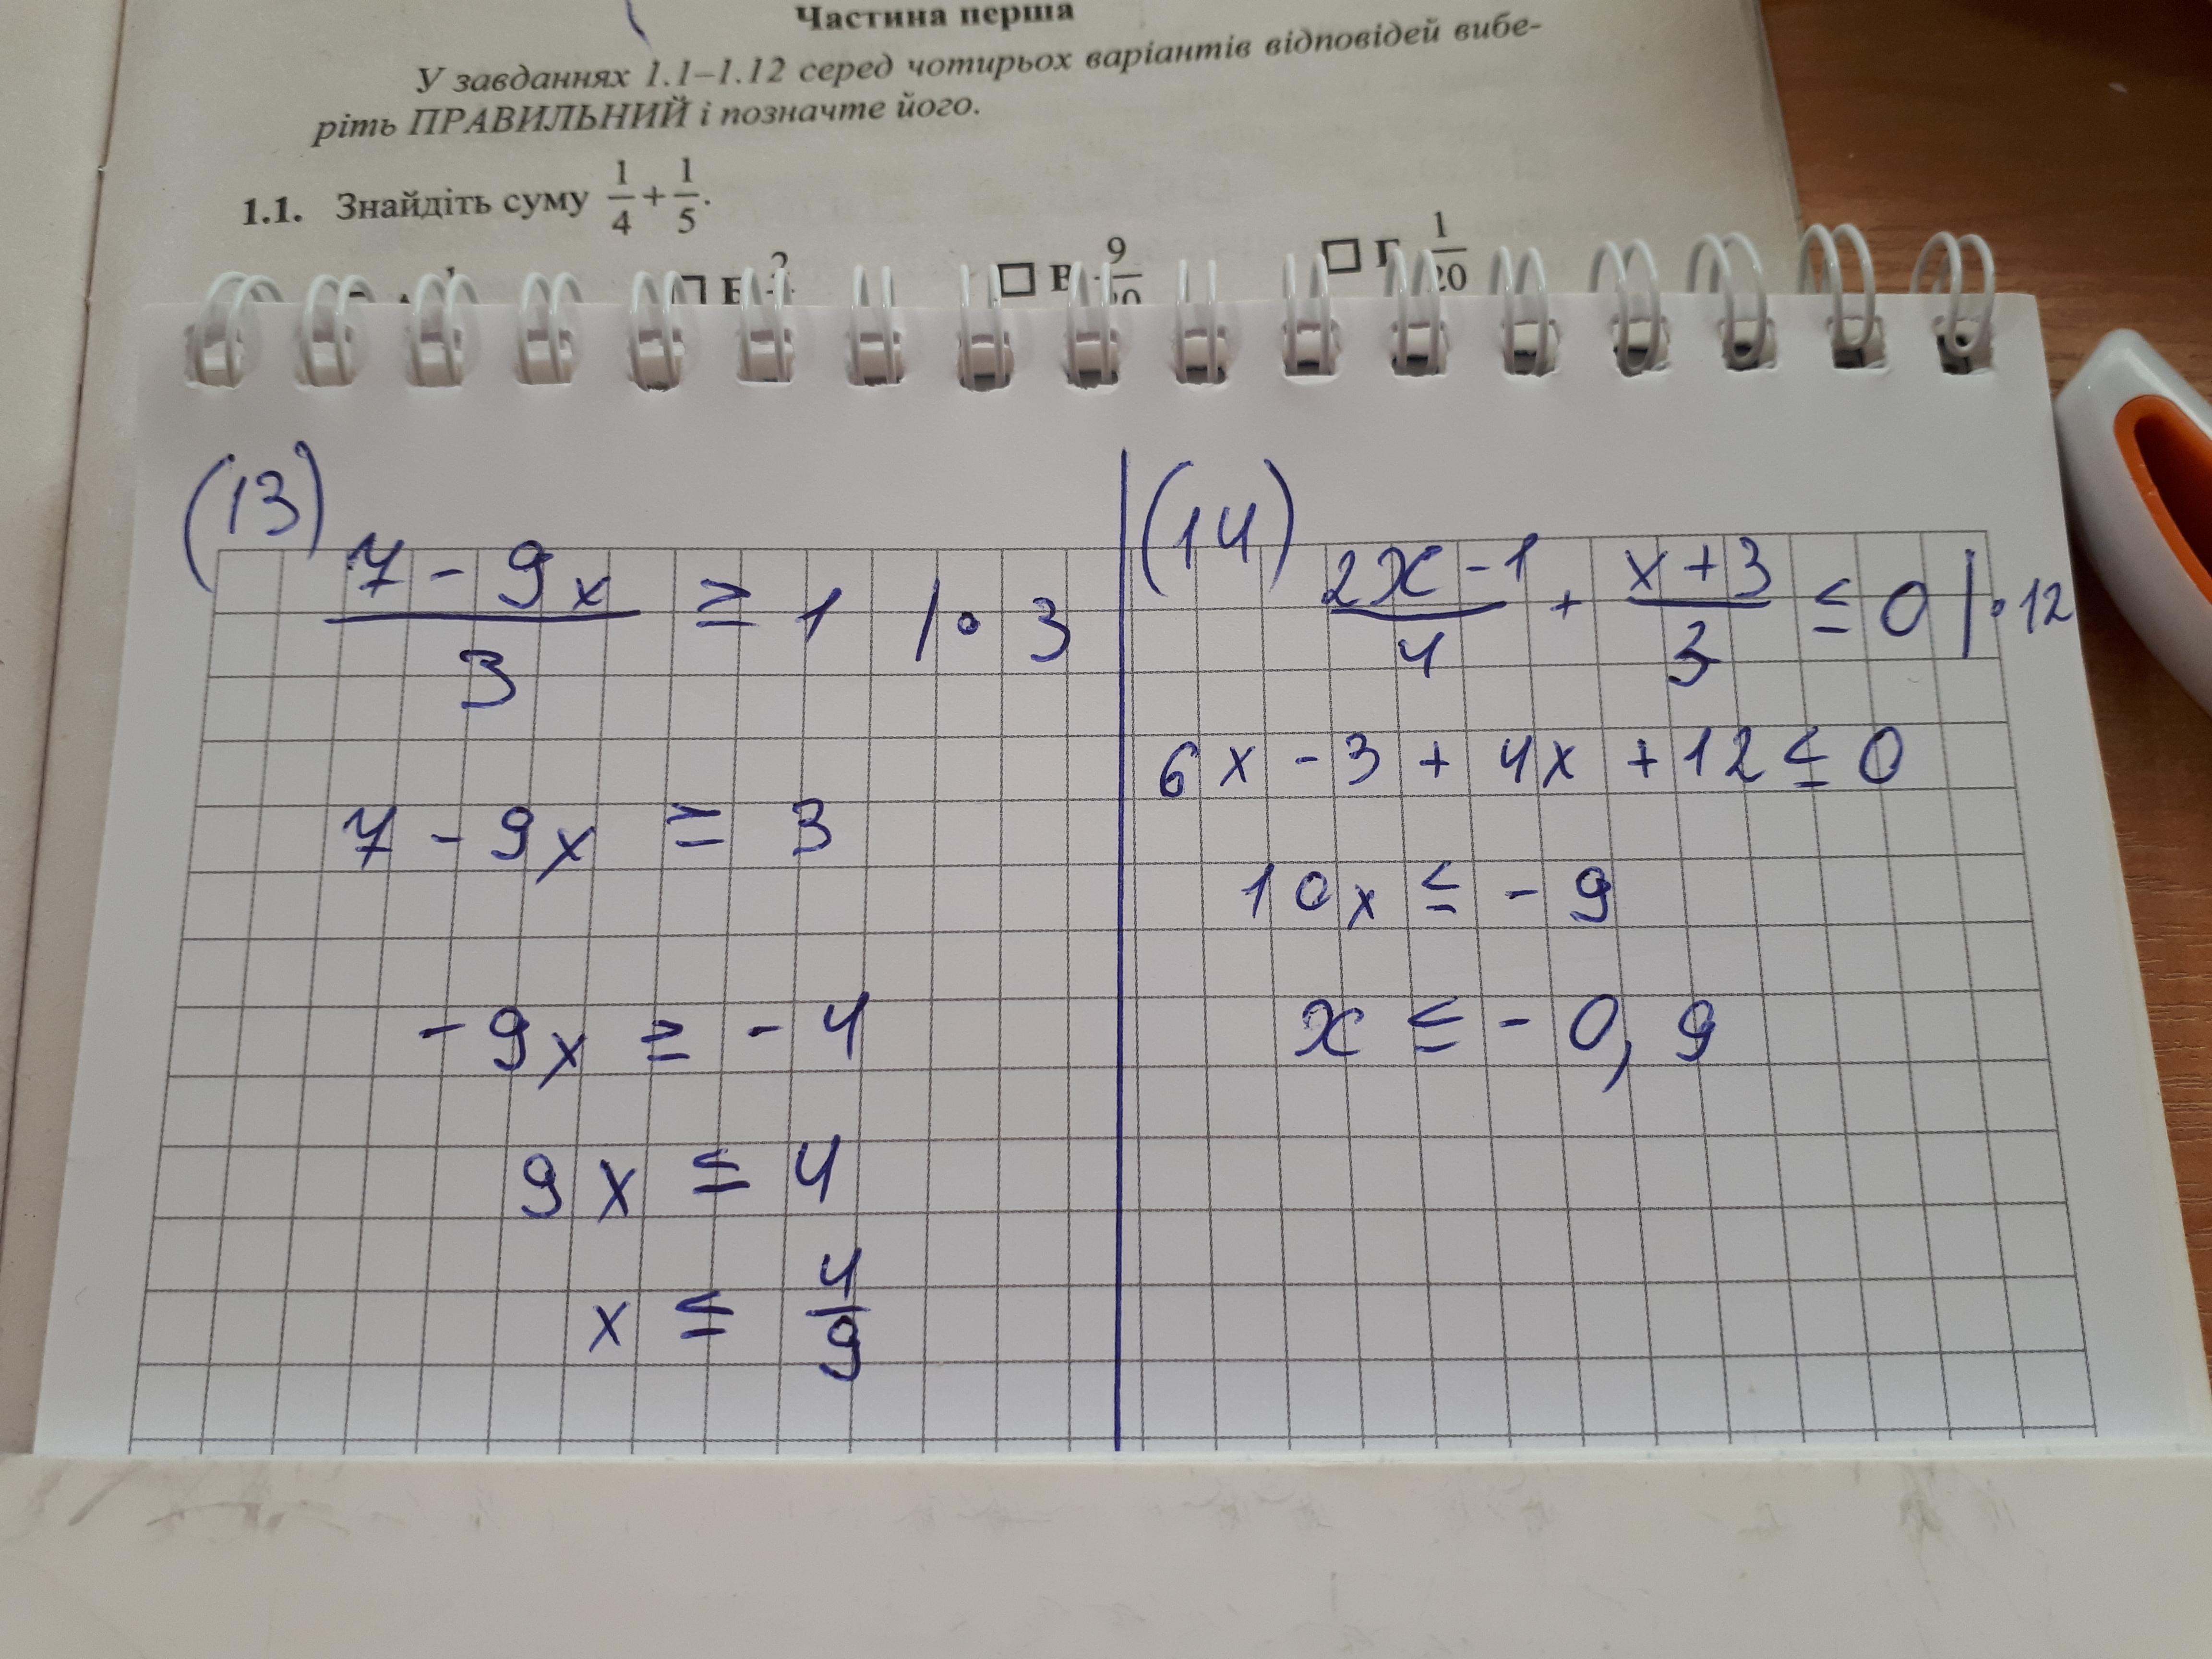 Частина перша
У завданнях 1.1–1.12 серед чотирьох варіантів відповідей вибе-
ріть ПРАВИЛЬНИЙ і позначте його.
1.1. Знайдіть суму 1/4 + 1/5.
☐ В 9/20 ☐ Г 1/20
(13)
(7 - 9x)/3 ≥ 1 | · 3
7 - 9x ≥ 3
-9x ≥ -4
9x ≤ 4
x ≤ 4/9
(14)
(2x - 1)/4 + (x + 3)/3 ≤ 0 | · 12
6x - 3 + 4x + 12 ≤ 0
10x ≤ -9
x ≤ -0,9